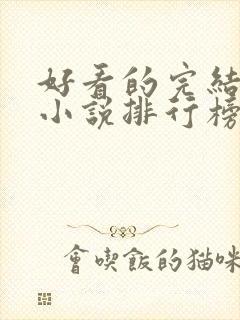 好看的完結
小說排行榜
會喫飯的貓咪